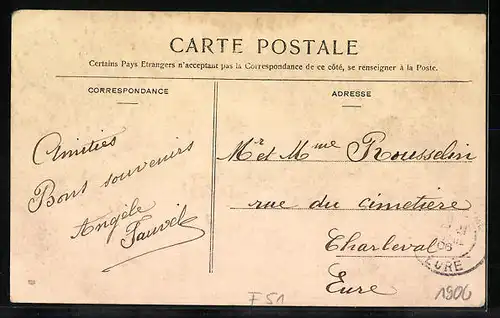 CARTE POSTALE
Certains Pays Etrangers n'acceptant pas la Correspondance de ce côté, se renseigner à la Poste.
CORRESPONDANCE
Amitiés
Bons souvenirs
Angèle
Fauvel
ADRESSE
Mr et Mme Rousselin
rue du cimetière
Charleval
Eure
06
EURE
F51
1906